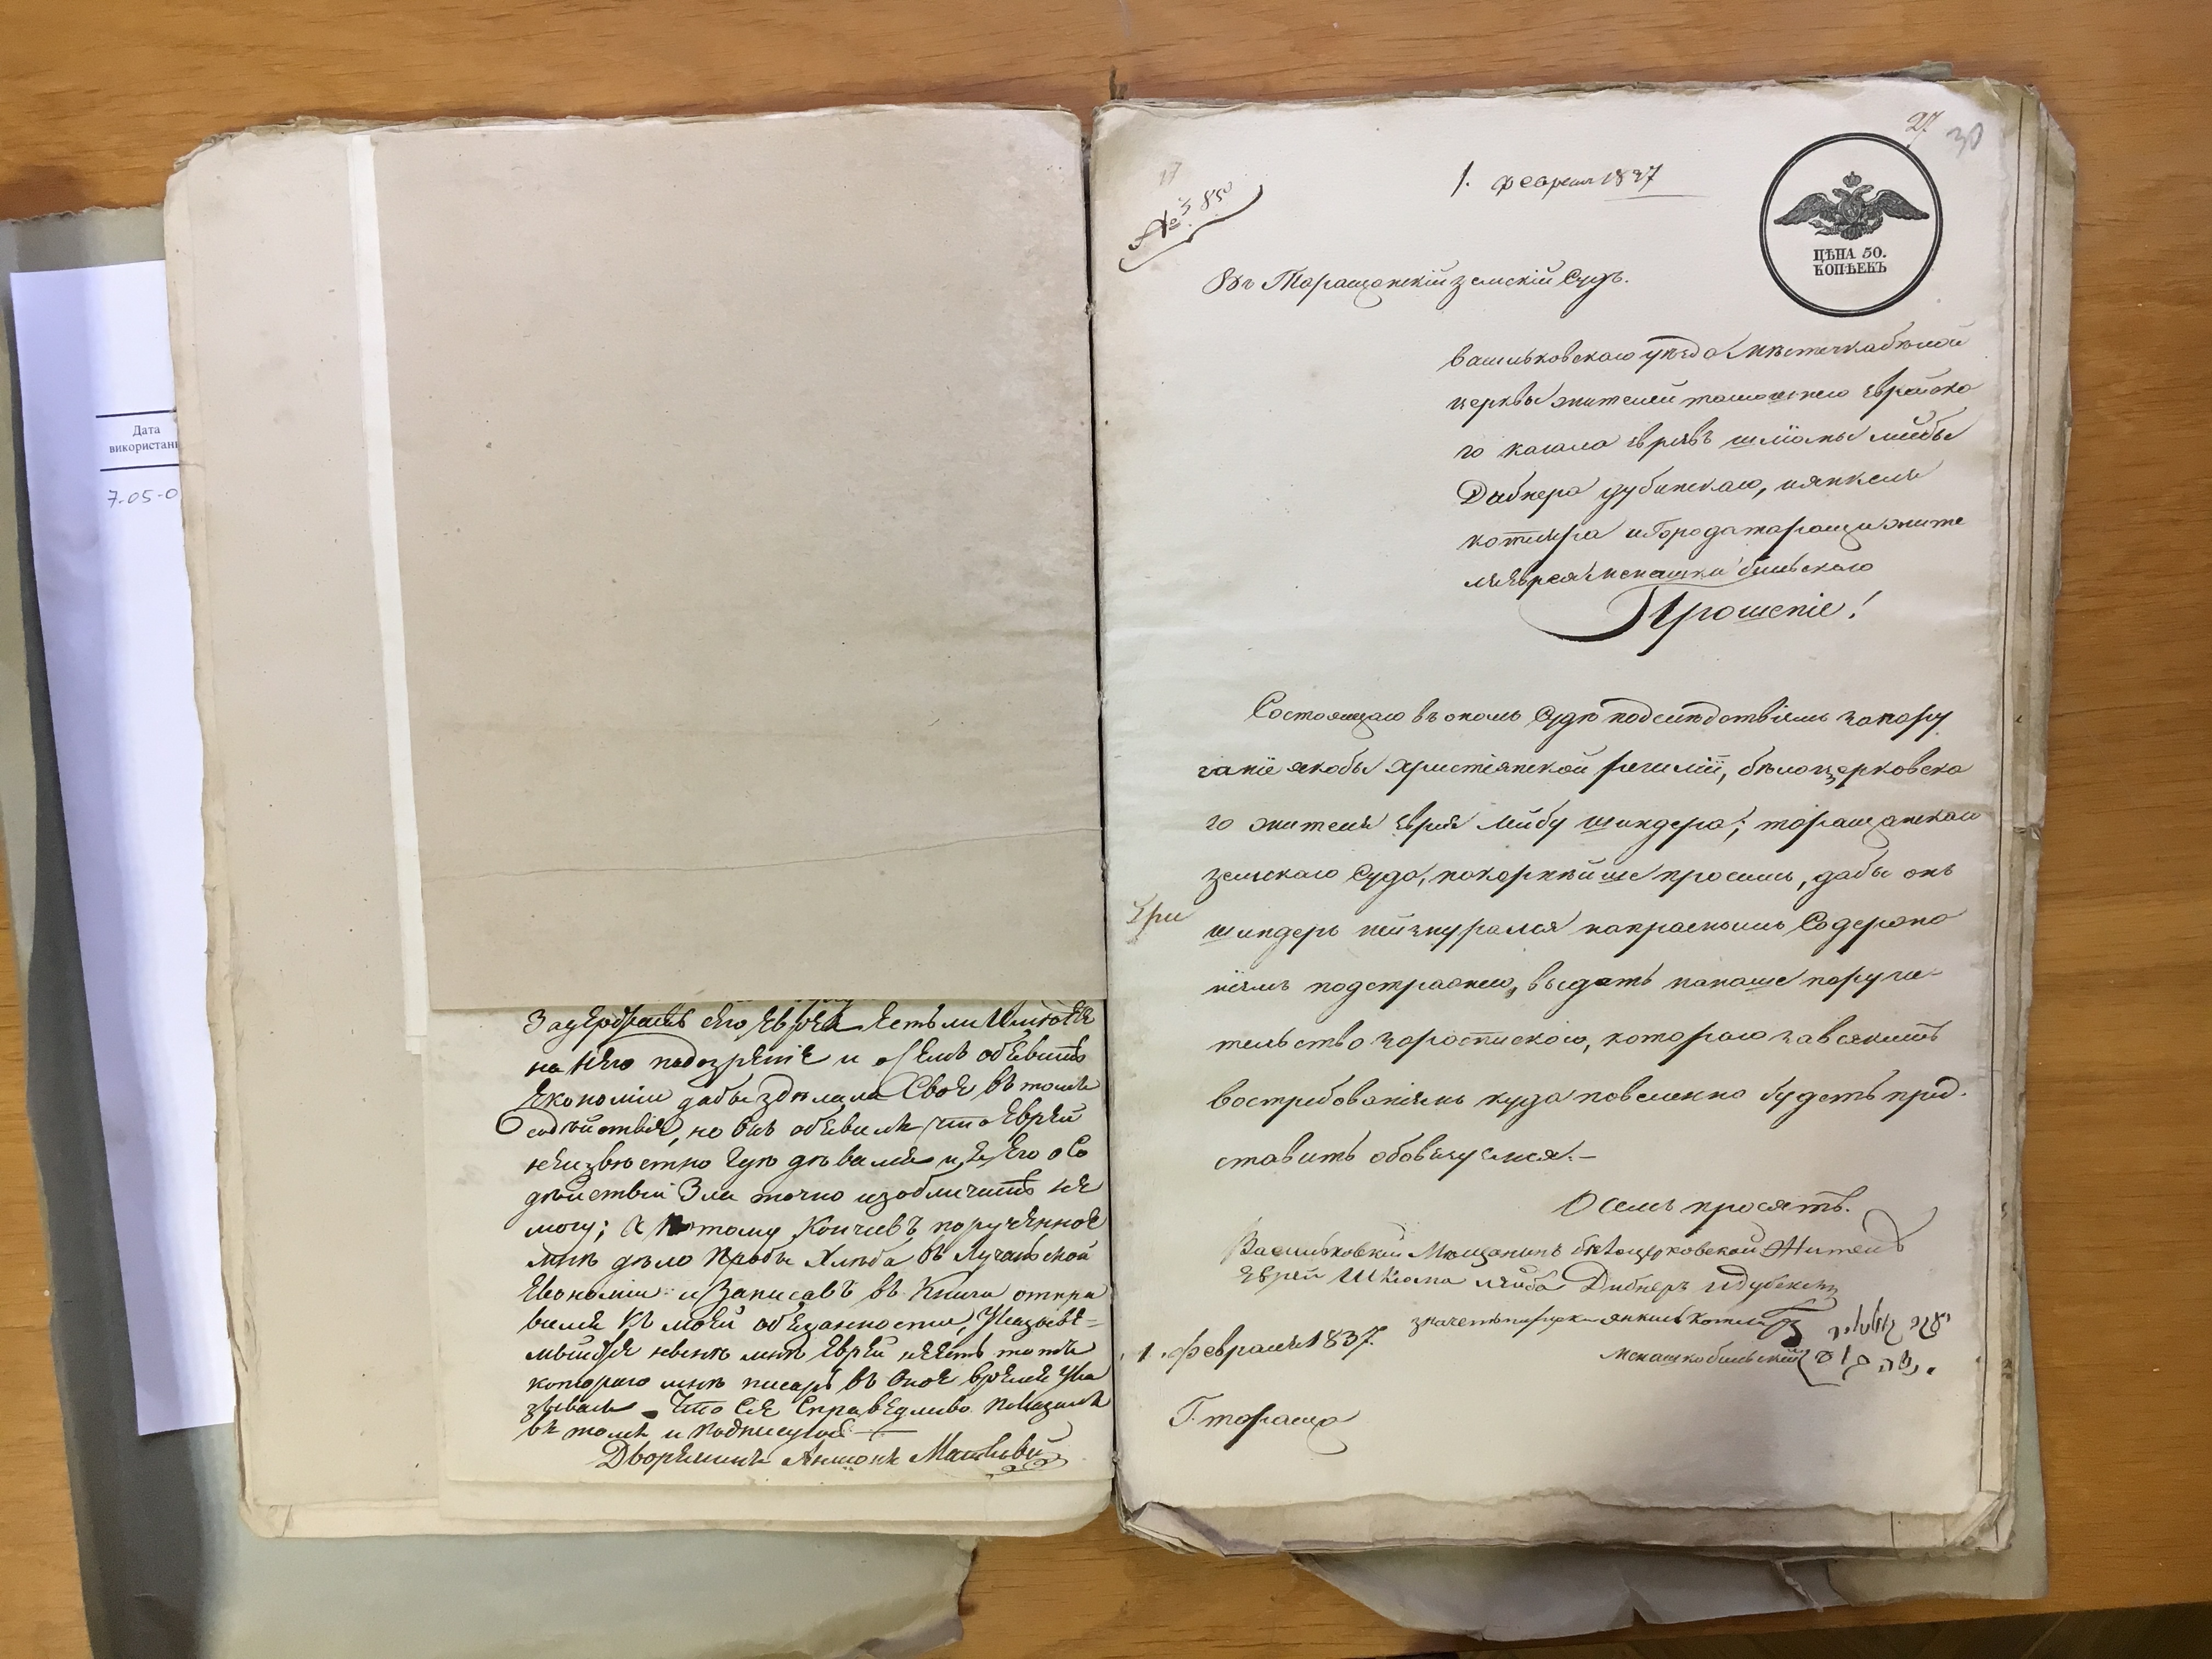 Дата
використан
7-05-0
Задержать его Еврея Естьли Имеюте
на него подозрение и о семъ объявить
Економіи дабы зделала Свое въ томъ
Содѣйствіе, но онъ объявилъ что Еврей
неизвѣстно гдѣ девался и Его о Со
дѣйствіи Зла точно изобличить не
могу; а потому Кончивъ порученное
мнѣ дѣло пробы Хлѣба въ Лучанской
Економіи и Записавъ въ Книги отпра
вился Къ моей обязанности,
мнѣ Еврей тотъ
котораго мнѣ писарь въ оное время Ука
зывалъ Что Сіе Справедливо показалъ
въ томъ и подписуюсь
Дворянинъ Антонъ
27.
30
17
№ 385
1. февраля 1837
ЦѢНА 50.
КОПѢЕКЪ
Въ Таращанскій земскій Судъ.
васильковскаго уѣзда Мѣстечка бѣлой
церквы жителей тамошнего Еврейска
го кагала Евреевъ шліомы лейбы
Дибнера дубинскаго, иянкеля
котляра и города таращи жите
ля Еврея менашки бильского
Прошеніе!
Состоящаго въ ономъ Судѣ подслѣдствіемъ запору
ганіе якобы христіянской религіи, бѣлоцерковска
го жителя Еврея лейбу шиндера; таращанскаго
земскаго Суда, покорнѣйше просимъ, дабы онъ
шиндеръ неизнурался напраснымъ Содержа
ніемъ подстражею, выдать нанаше поручи-
тельство зароспискою, котораго завсякимъ
востребованіемъ куда повелено будетъ пред-
ставить обовязуемся.-
О семъ просятъ.
Васильковскій Мещанинъ бѣлоцерковской Житель
Еврей Шліома лейба Дибнеръ
янкиль котляръ
менашко бильскій
1. февраля 1837.
Г. тараща